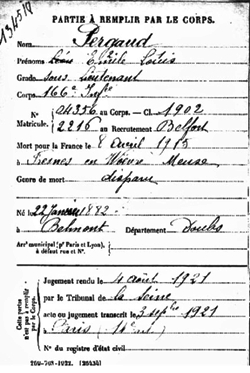 PARTIE À REMPLIR PAR LE CORPS.
Nom Pergaud
Prénoms Léon Emile Louis
Grade Sous Lieutenant
Corps 166e Infie
N° 04356 au Corps. — Cl. 1902
Matricule. 2216 au Recrutement Belfort
Mort pour la France le 8 Avril 1915
à Fresnes en Woëvre Meuse
Genre de mort disparu
Né le 22 Janvier 1882
à Belmont Département Doubs
Arrt municipal (pr Paris et Lyon),
à défaut rue et N°.
Cette partie
n'est pas à remplir
par le Corps.
Jugement rendu le 4 août 1921
par le Tribunal de la Seine
acte ou jugement transcrit le 3 septbre 1921
à Paris
N° du registre d'état civil
269-708-1922. [26434]